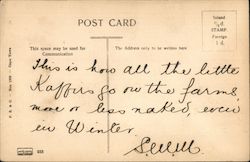 POST CARD
Island
½d.
STAMP.
Foreign
1d.
This space may be used for
Communication
The Address only to be written here
This is how all the little
Kaffirs go on the farms
more or less naked, even
in Winter.